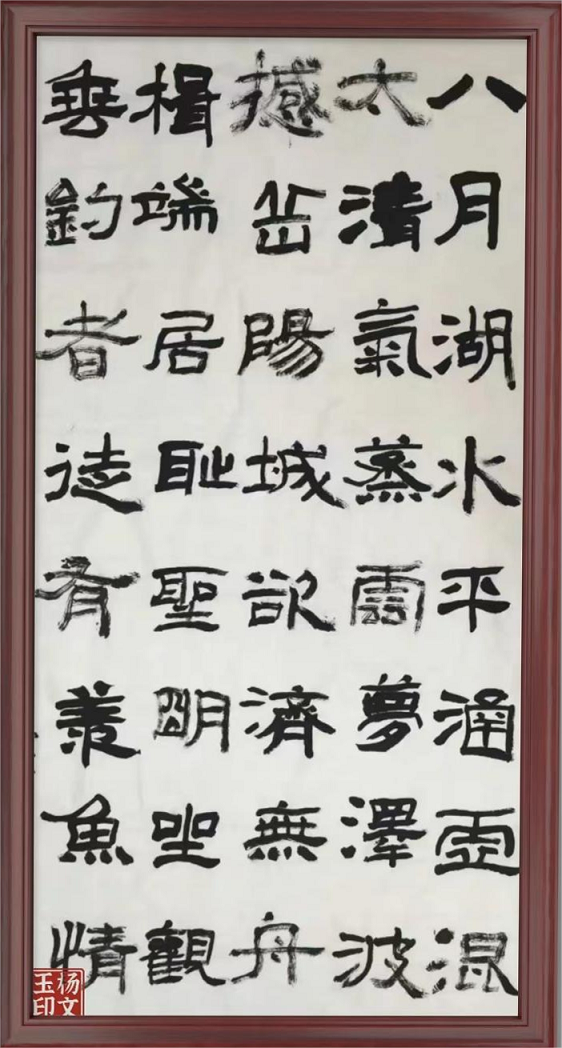 八月湖水平涵虛混
太清氣蒸雲夢澤波
撼岳陽城欲濟無舟
楫端居耻聖明坐觀
垂釣者徒有羨魚情
杨文玉印